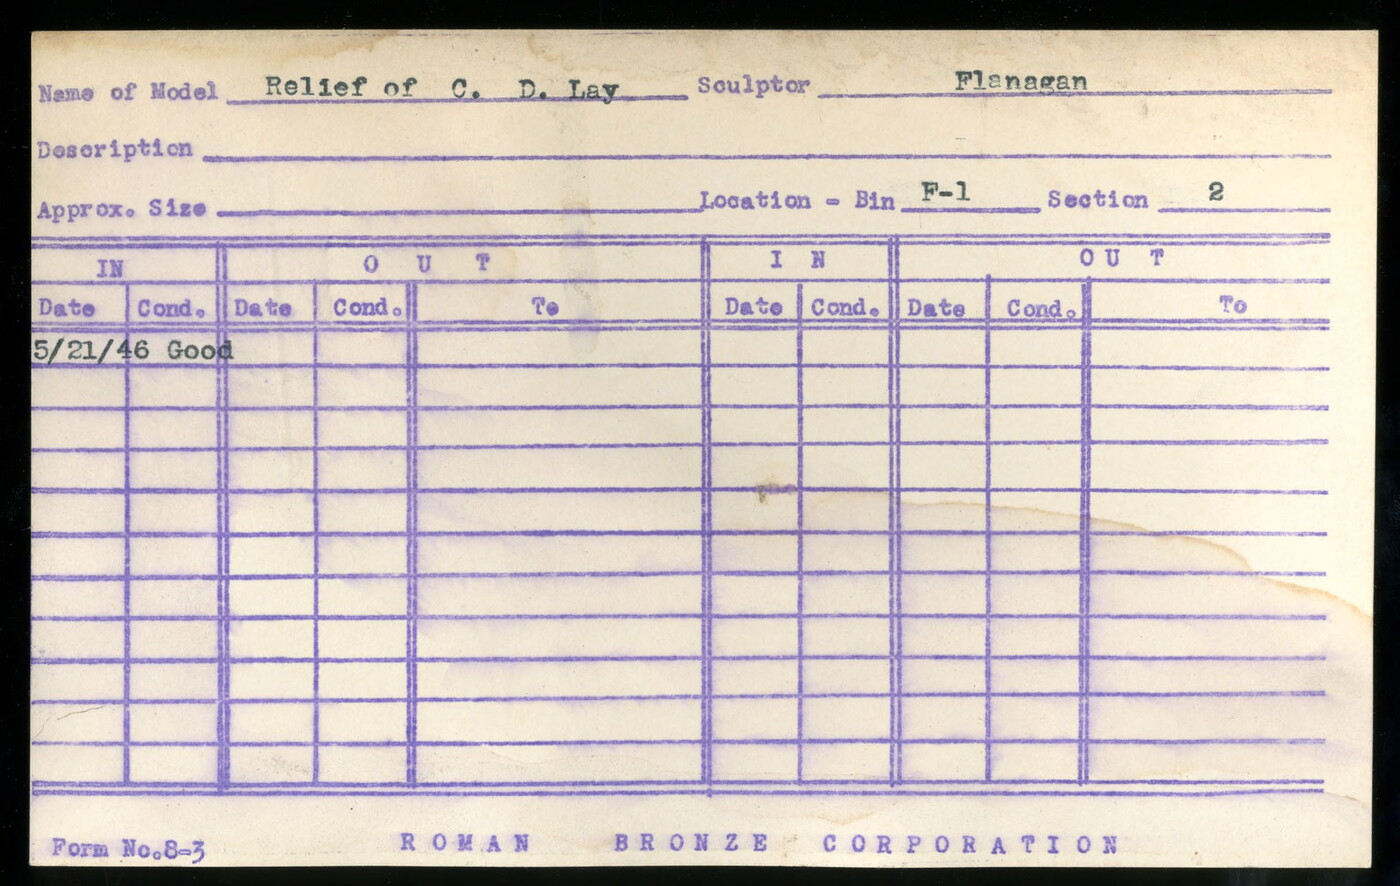 Name of Model Relief of C. D. Lay Sculptor Flanagan
Description
Approx. Size Location - Bin F-1 Section 2
IN OUT IN OUT
Date Cond. Date Cond. To Date Cond. Date Cond. To
5/21/46 Good
Form No.8-3 ROMAN BRONZE CORPORATION